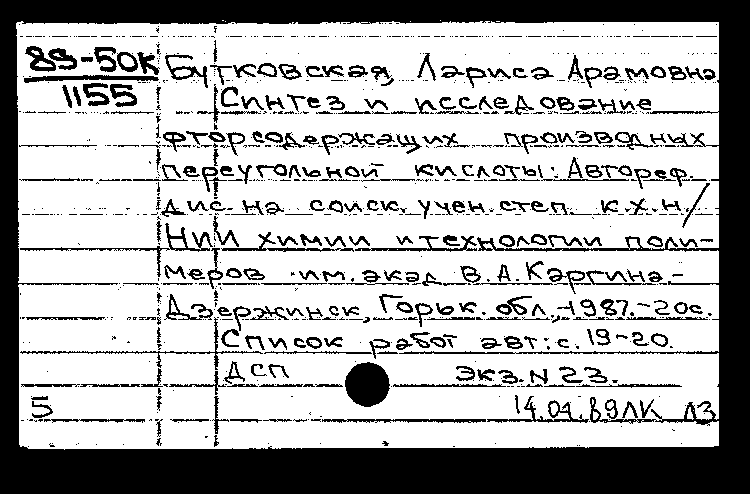 89-50К
1155
Бутковская, Лариса Арамовна
Синтез и исследование
фторсодержащих производных
перугольной кислоты: Автореф.
дис. на соиск. учен. степ. к.х.н./
НИИ химии и технологии поли-
меров им. акад. В.А. Каргина.-
Дзержинск, Горьк. обл., 1987.-20с.
Список работ авт.: с. 19-20.
ДСП экз. N 23.
5 14.04.89 ЛК ЛЗ